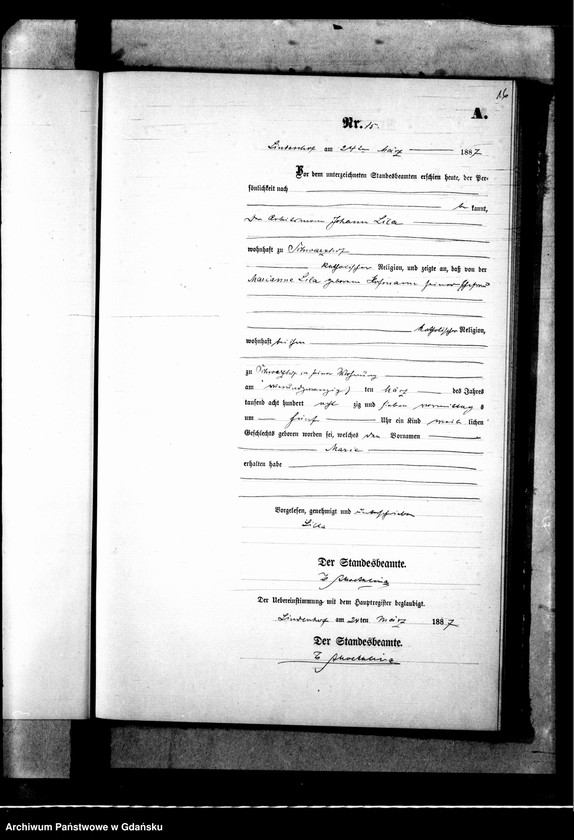 16
A.
Nr. 15.
Lindenhof am 24ten März 1887
Vor dem unterzeichneten Standesbeamten erschien heute, der Per-
sönlichkeit nach
be kannt,
Der Arbeitsmann Johann Lila
wohnhaft zu Schwarzhof
katholischer Religion, und zeigte an, daß von der
Marianne Lila geborene Hofmann seiner Ehefrau
katholischer Religion,
wohnhaft bei ihm
zu Schwarzhof in seiner Wohnung
am vierundzwanzig ten März des Jahres
tausend acht hundert acht zig und sieben vormittag s
um fünf Uhr ein Kind weib lichen
Geschlechts geboren worden sei, welches den Vornamen
Marie
erhalten habe
Vorgelesen, genehmigt und unterschrieben
Lila
Der Standesbeamte.
Der Uebereinstimmung mit dem Hauptregister beglaubigt.
Lindenhof am 24ten März 1887
Der Standesbeamte.
Archiwum Państwowe w Gdańsku